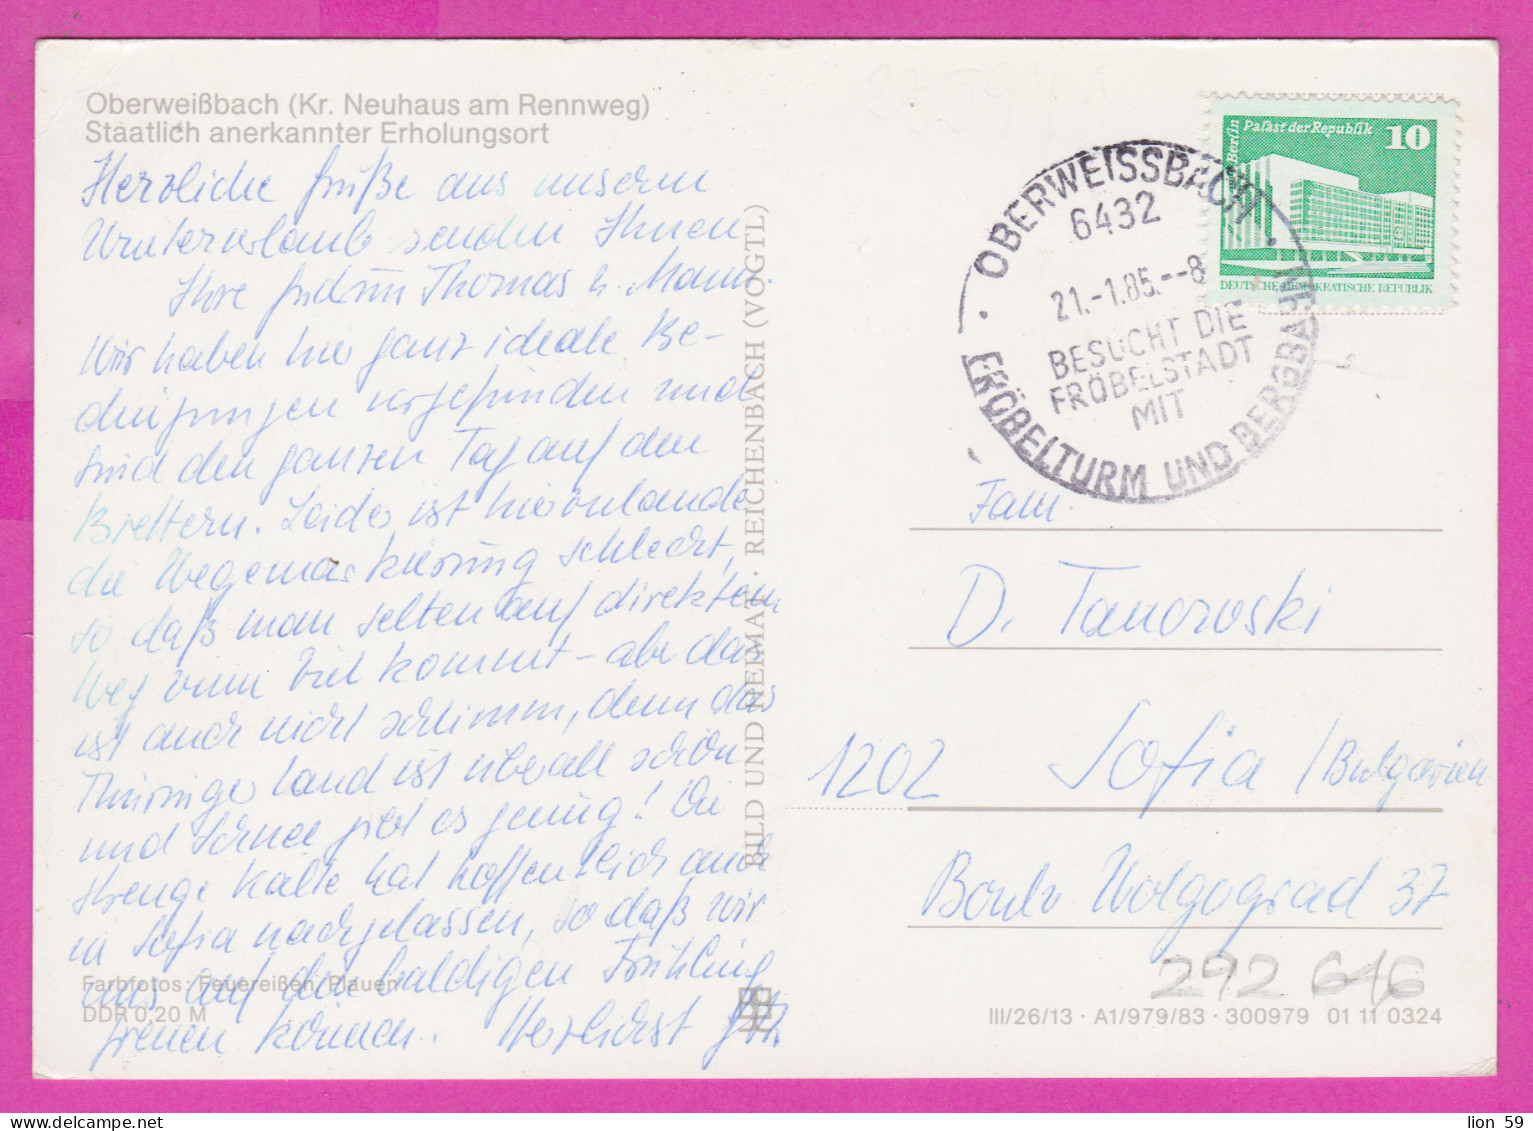 Oberweißbach (Kr. Neuhaus am Rennweg)
Staatlich anerkannter Erholungsort
Herzliche Grüße aus unserm
Winterurlaub senden Ihnen
Ihre Thomas u. Mann.
Wir haben hier ganz ideale Be-
dingungen vorgefunden und
sind den ganzen Tag auf den
Brettern. Leider ist hierzulande
die Wegemarkierung schlecht,
so daß man selten auf direktem
Weg zum Ziel kommt – aber das
ist auch nicht schlimm, denn das
Thüringer Land ist überall schön
und Schnee gibt es genug! Die
strenge Kälte hat hoffentlich auch
in Sofia nachgelassen, so daß wir
uns auf den baldigen Frühling
freuen können. Herzlichst
Farbfotos: Feuereißen, Plauen
DDR 0,20 M
BILD UND HEIMAT · REICHENBACH (VOGTL)
Berlin
Palast der Republik 10
DEUTSCHE DEMOKRATISCHE REPUBLIK
OBERWEISSBACH
6432
21.-1.85.--8
BESUCHT DIE
FRÖBELSTADT
MIT
FRÖBELTURM UND BERGBAHN
Fam.
D. Tanovski
1202 Sofia / Bulgarien
Boulv Wolgograd 37
292 646
III/26/13 · A1/979/83 · 300979 01 11 0324
lion 59